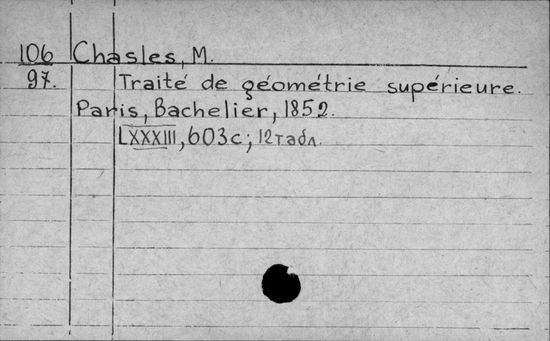 106 Chasles, M.
97. Traité de géométrie supérieure.
Paris, Bachelier, 1852.
LXXXIII, 603с; 12табл.